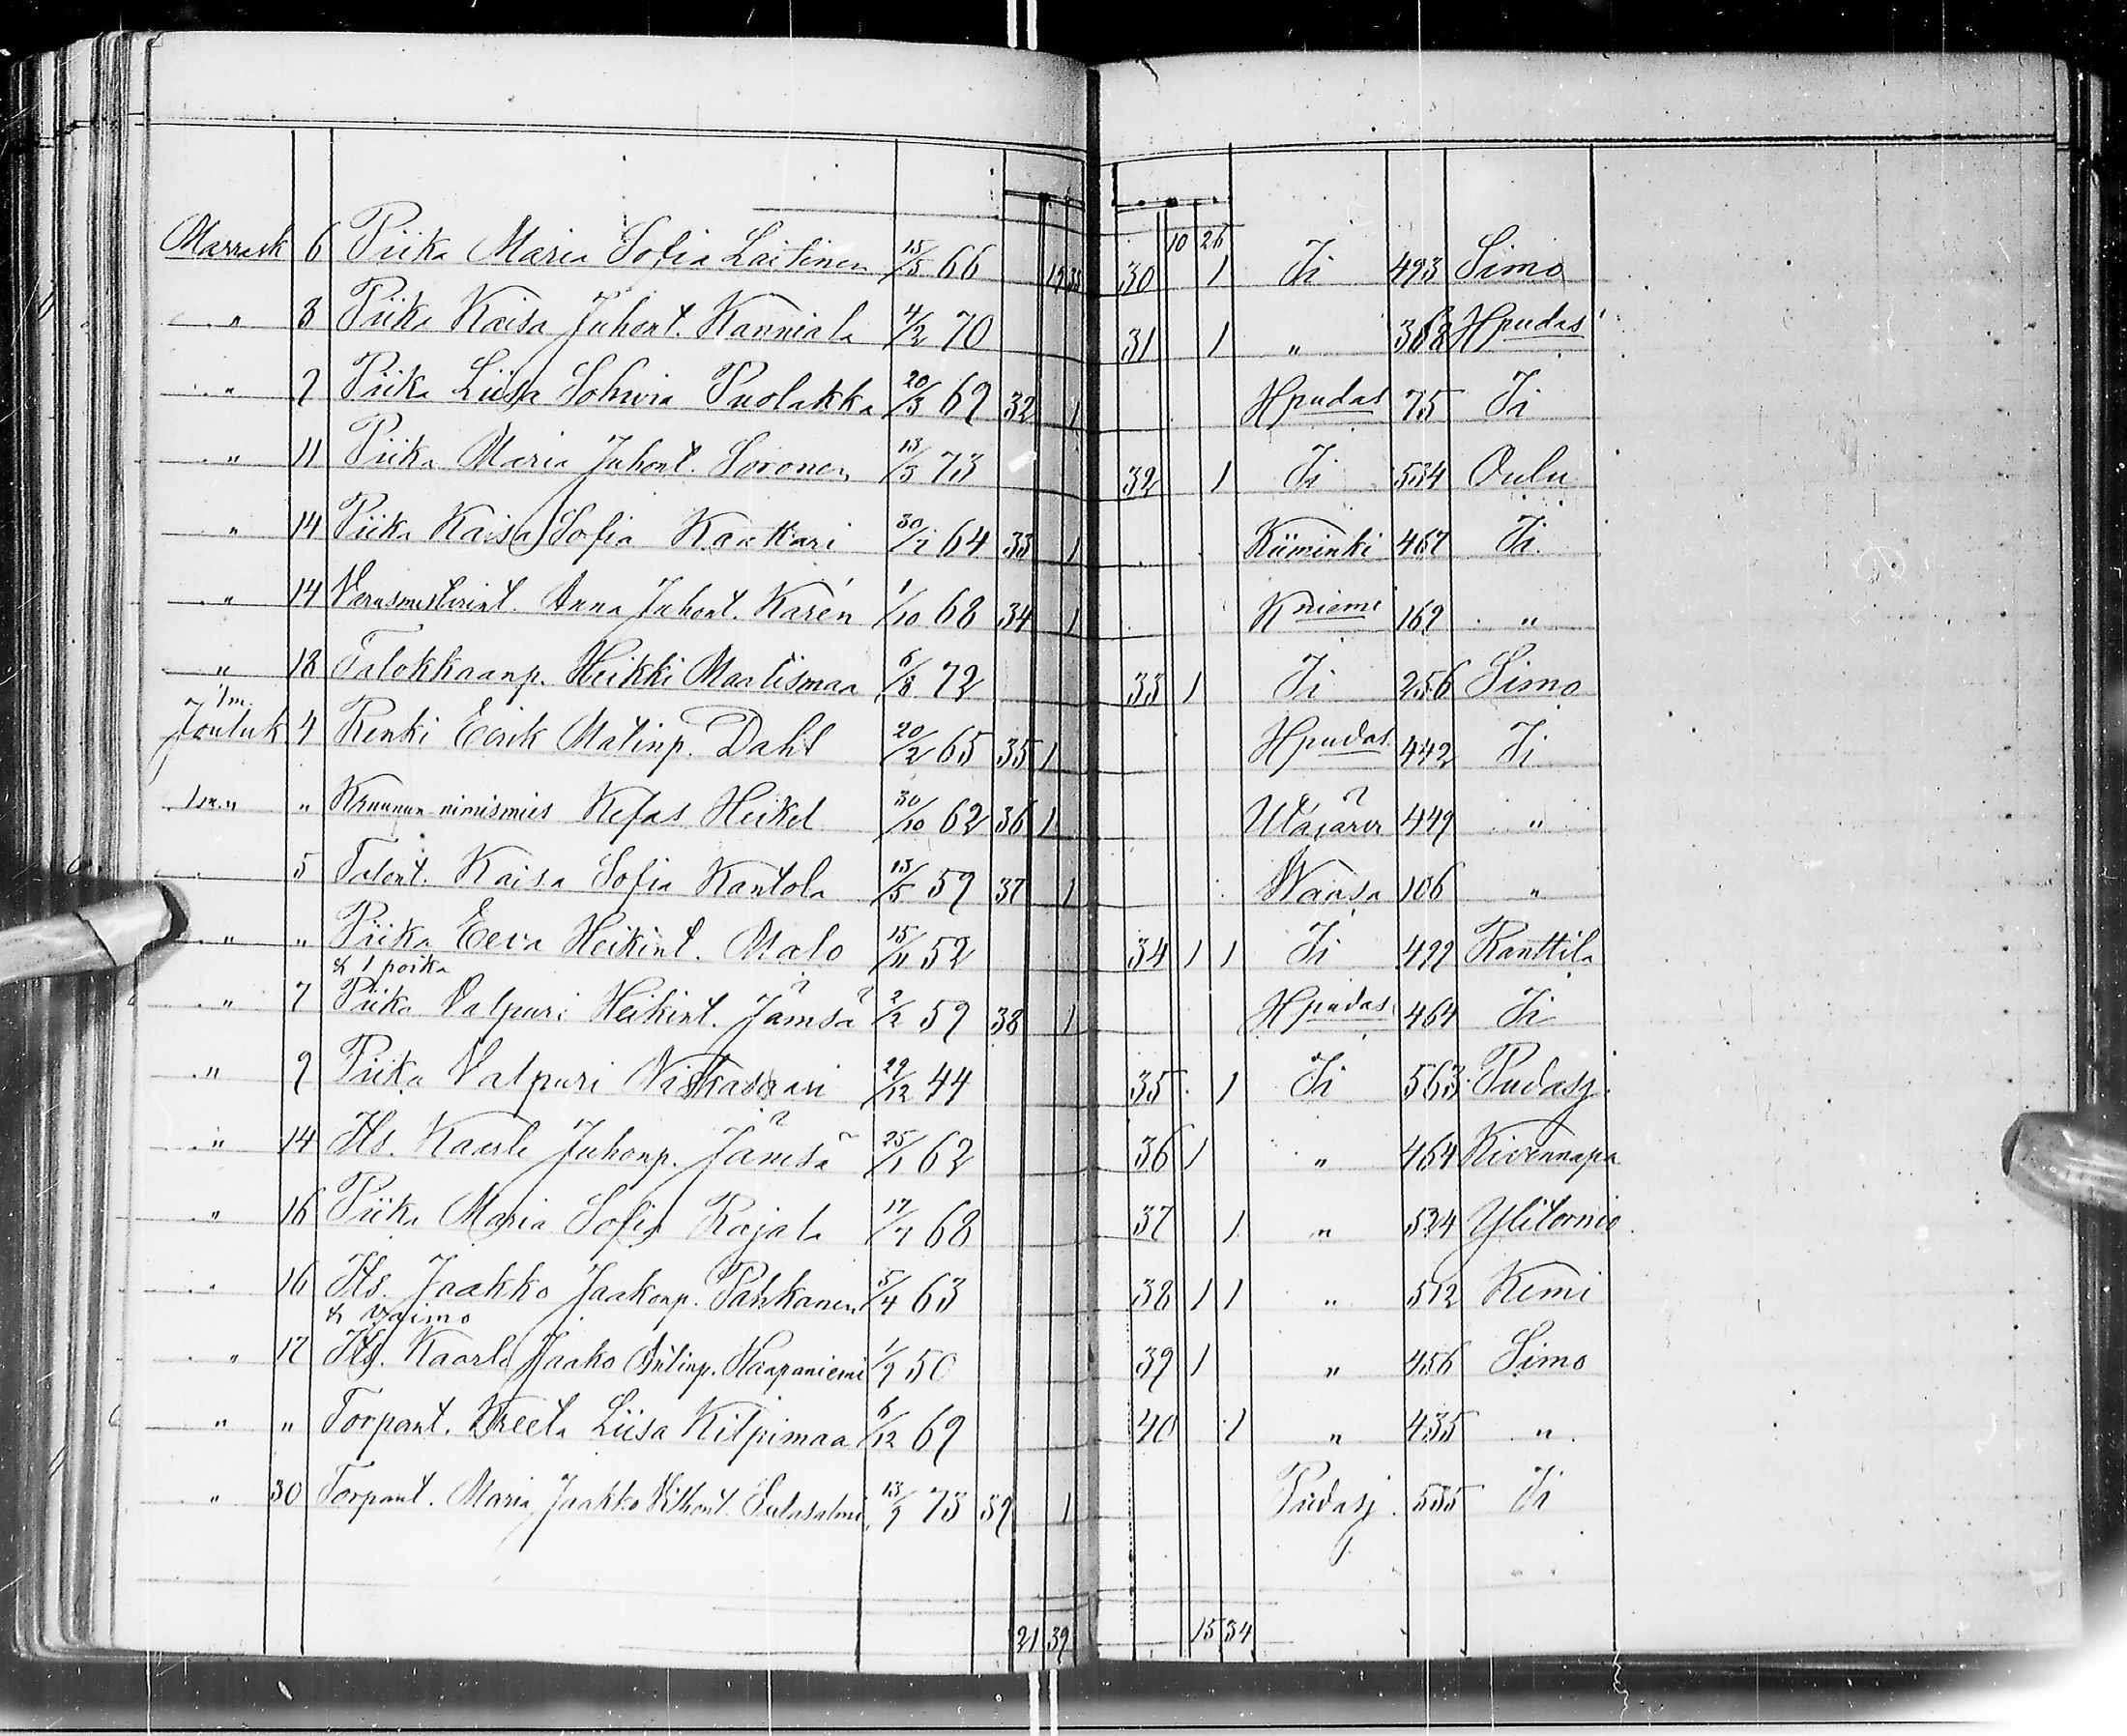 10 26
Marrask 6 Piika Maria Sofia Laitinen 15/5 66 19 35 30 1 Ii 493 Simo
" 8 Piika Kaisa Juhont. Kanniala 4/2 70 31 1 " 368 Hpudas
" 9 Piika Liisa Sohvia Puolakka 20/3 69 32 1 Hpudas 75 Ii
" 11 Piika Maria Juhont. Soronen 13/3 73 32 1 Ii 534 Oulu
" 14 Piika Kaisa Sofia Kaakkuri 64 33 1 Kiiminki 467 Ii
" 14 Anna Juhont. Karén 1/10 68 34 1 Kniemi 169 "
" 18 Talokkaanp. Heikki Maalismaa 6/8 72 33 1 Ii 256 Simo
1m.
Jouluk 4 Renki Eerik Matinp. Dahl 20/2 65 35 1 Hpudas 442 Ii
1m. " " Kruunun nimismies Kefas Heikel 30/10 62 36 1 449 "
5 Talont. Kaisa Sofia Kantola 13/5 59 37 1 Waasa 106 "
" " Piika Eeva Heikint. Malo 15/11 52 34 1 1 Ii 499 Ranttila
& 1 poika
" 7 Piika Valpuri Heikint. Jämsä 2/2 59 38 1 Hpudas 464 Ii
" 9 Piika Valpuri 29/12 44 35 1 Ii 563 Pudasj.
" 14 Its. Kaarle Juhonp. Jämsä 25/1 62 36 1 " 464 Kivennapa
" 16 Piika Maria Sofia Rajala 17/7 68 37 1 " 524 Ylitornio
" 16 Its. Jaakko Jaakonp. Pahkanen 5/4 63 38 1 1 " 512 Kemi
& vaimo
" 17 Its. Kaarle Jaako Antinp. Haapaniemi 1/9 50 39 1 " 456 Simo
" " Torpant. Kreeta Liisa Kilpimaa 6/12 69 40 1 " 435 "
" 30 Torpant. Maria Jaakko 13/9 73 39 1 Pudasj. 535 Ii
21 39 15 34